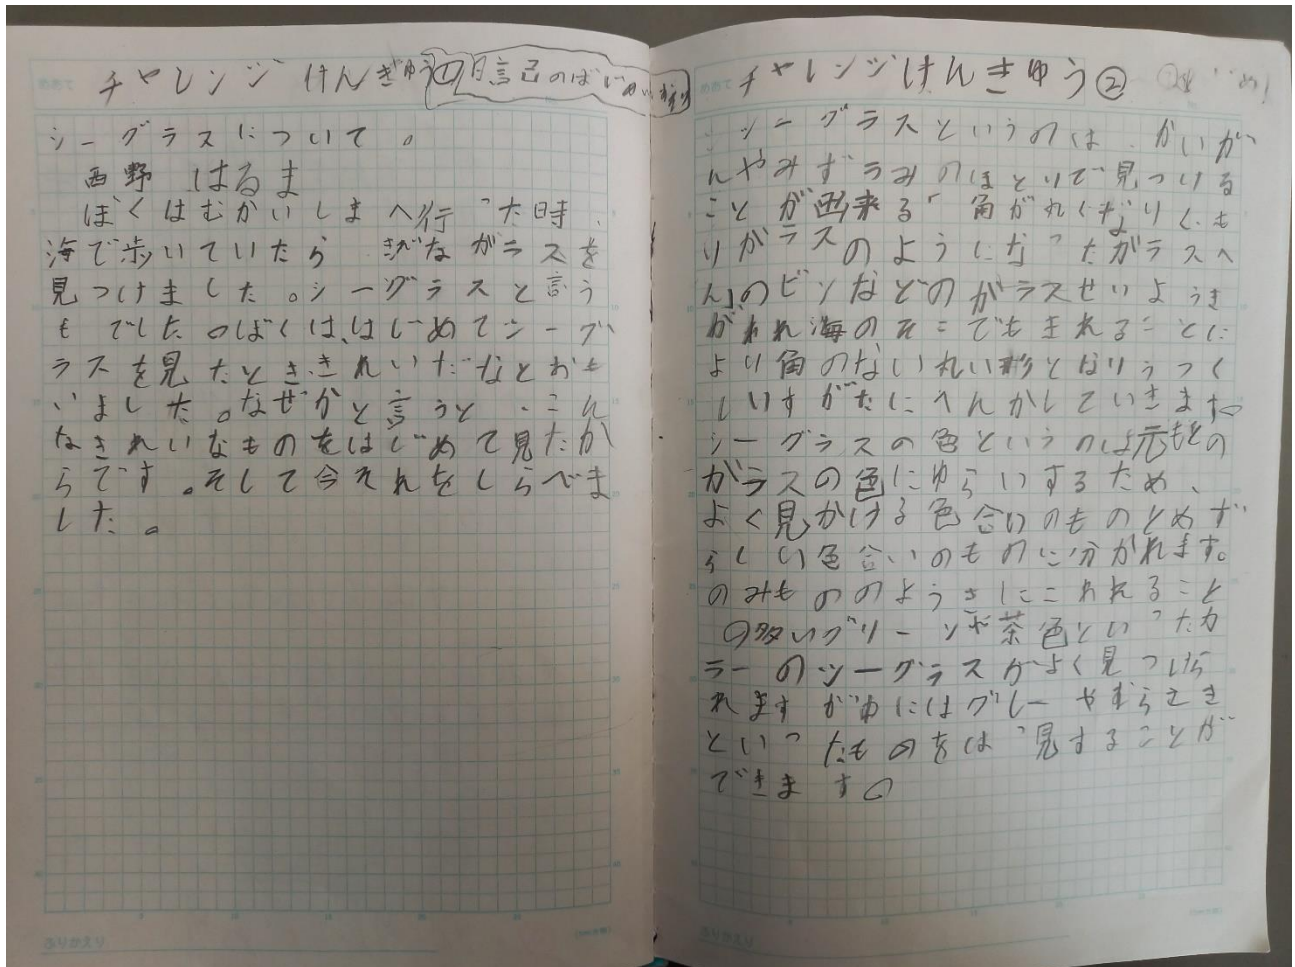 チャレンジ けんぎゅう① 日記のはじめ
シーグラスについて。
西野 はるま
ぼくはむかいしまへ行った時、
海で歩いていたら きれいながラスを
見つけました。シーグラスと言う
もでした。ぼくは、はじめてシーグ
ラスを見たとき、きれいだなとおも
いました。なぜかと言うと、こん
なきれいなものをはじめて見たか
らです。そして今それをしらべま
した。
チャレンジけんきゅう②
シーグラスというのは、かいが
んやみずうみのほとりで見つける
ことが出来る「角がれくなりくも
りがラスのようになったがラスへ
ん」のビンなどのがラスせいようき
がわれ海のそこでもまれることに
より角のないれい形となりうつく
しいすがたにへんかしていきます。
シーグラスの色というのは元もとの
がラスの色にゆらいするため、
よく見かける色合いのものとめず
らしい色合いのものに分かれます。
のみもののようきにこわれること
の多いグリーンや茶色といったカ
ラーのシーグラスがよく見つけら
れますが中にはグレーやむらさき
といったものをはっ見することが
できます。